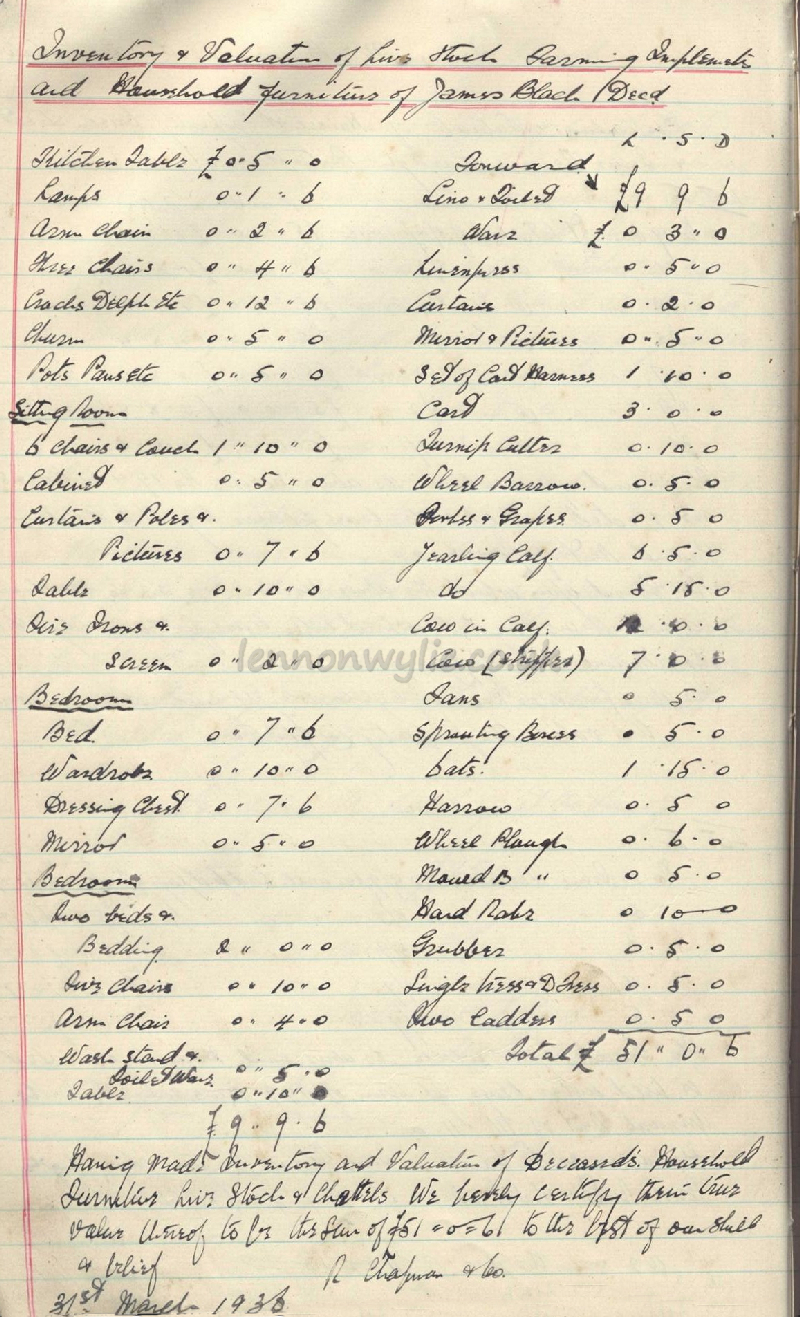 Inventory & Valuation of Live Stock Farming Implements
and Household furniture of James Black Decd
Kitchen Table £ 0 " 5 " 0
Lamps 0 " 1 " 6
Arm Chair 0 " 2 " 6
Three Chairs 0 " 4 " 6
Crocks Delph Etc 0 " 12 " 6
Churn 0 " 5 " 0
Pots Pans Etc 0 " 5 " 0
Sitting Room
6 Chairs & Couch 1 " 10 " 0
Cabinet 0 " 5 " 0
Curtains & Poles &
Pictures 0 " 7 " 6
Table 0 " 10 " 0
Fire Irons &
Screen 0 " 2 " 0
Bedroom
Bed 0 " 7 " 6
Wardrobe 0 " 10 " 0
Dressing Chest 0 " 7 " 6
Mirror 0 " 5 " 0
Bedroom
Two beds &
Bedding 2 " 0 " 0
Five Chairs 0 " 10 " 0
Arm Chair 0 " 4 " 0
Wash stand &
Toilet Ware 0 " 5 " 0
Table 0 " 10 " 0
£ 9 " 9 " 6
£ . S . D
Forward
Lino & Toilet £9 9 6
Ware £ 0 3 " 0
Linenpress 0 " 5 " 0
Curtains 0 . 2 . 0
Mirror & Pictures 0 " 5 " 0
Set of Cart Harness 1 . 10 . 0
Cart 3 . 0 . 0
Turnip Cutter 0 . 10 . 0
Wheel Barrow 0 . 5 . 0
Forks & Grapes 0 . 5 0
Yearling Calf 6 . 5 . 0
do 5 . 15 . 0
Cow in Calf 12 . 0 . 0
Cow (Stripper) 7 . 0 . 0
lennonwylie.co.uk
0 5 . 0
Sprouting Boxes 0 . 5 . 0
Oats 1 . 15 . 0
Harrow 0 . 5 0
Wheel Plough 0 . 6 . 0
Mould B " 0 5 . 0
Hand Rake 0 10 — 0
Grubber 0 . 5 . 0
Single trees & D Trees 0 . 5 . 0
Two Ladders 0 . 5 0
Total £ 51 " 0 " 6
Having made Inventory and Valuation of Deceased's Household
Furniture Live Stock & Chattels We hereby certify their true
value thereof to be the Sum of £51 = 0 = 6 to the best of our skill
& belief R Chapman & Co.
31st March 1936